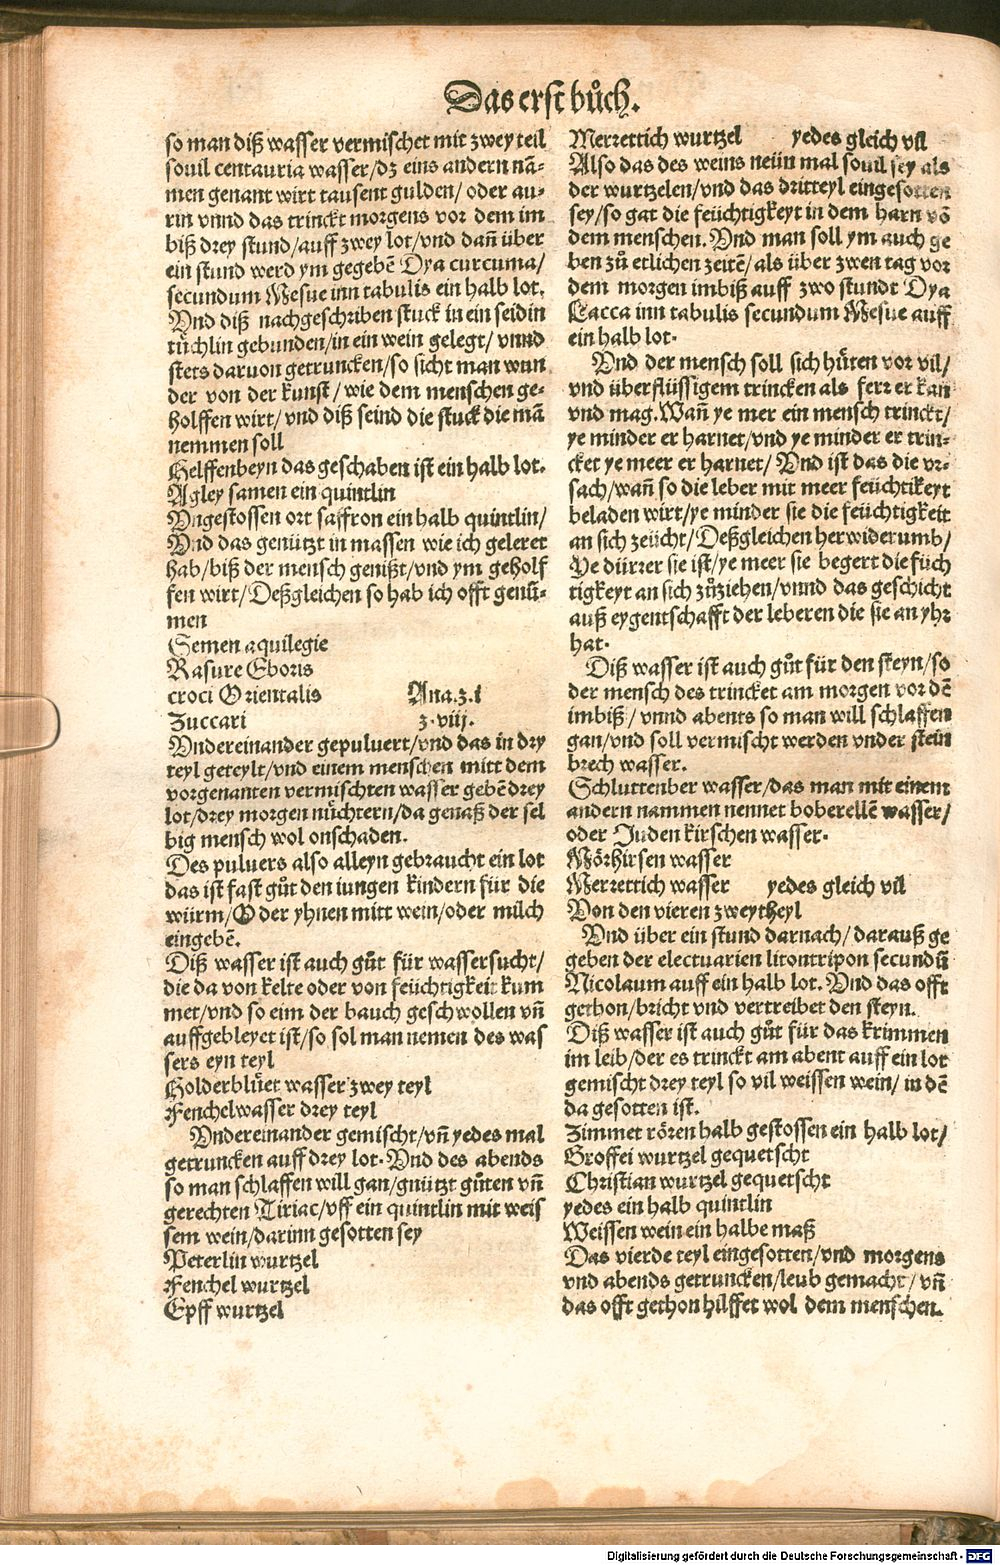 Das erst bůch.
so man diß wasser vermischet mit zwey teil
souil centauria wasser/dz eins andern nā-
men genant wirt tausent gulden/ oder au-
rin vnnd das trinckt morgens vor dem im
biß drey stund/auff zwey lot/vnd dañ über
ein stund werd ym gegebē Dya curcuma/
secundum Mesue inn tabulis ein halb lot.
Vnd diß nachgeschriben stuck in ein seidin
tüchlin gebunden/in ein wein gelegt/ vnnd
stets daruon getruncken/so sicht man wun
der von der kunst/ wie dem menschen ge-
holffen wirt/ vnd diß seind die stuck die mā
nemmen soll
Helffenbeyn das geschaben ist ein halb lot.
Agley samen ein quintlin
Vngestossen ort saffron ein halb quintlin/
Vnd das genützt in massen wie ich geleret
hab/biß der mensch genißt/vnd ym geholf
fen wirt/Deßgleichen so hab ich offt genū-
men
Semen aquilegie
Rasure Eboris
croci Orientalis Ana.ʒ.i
Zuccari ʒ.viij.
Vndereinander gepuluert/vnd das in dry
teyl geteylt/vnd einem menschen mitt dem
vorgenanten vermischten wasser gebē drey
lot/drey morgen nüchtern/da genaß der sel
big mensch wol onschaden.
Des puluers also alleyn gebraucht ein lot
das ist fast gůt den iungen kindern für die
würm/Oder yhnen mitt wein/oder milch
eingebē.
Diß wasser ist auch gůt für wassersucht/
die da von kelte oder von feüchtigkeit kum
met/vnd so eim der bauch geschwollen vñ
auffgebleyet ist/so sol man nemen des was
sers eyn teyl
Holderblüet wasser zwey teyl
Fenchelwasser drey teyl
Vndereinander gemischt/vñ yedes mal
getruncken auff drey lot. Vnd des abends
so man schlaffen will gan/gnützt gůten vñ
gerechten Tiriac/vff ein quintlin mit weis
sem wein/darinn gesotten sey
Peterlin wurtzel
Fenchel wurtzel
Epff wurtzel
Merrettich wurtzel yedes gleich vil
Also das des weins neün mal souil sey als
der wurtzelen/vnd das dritteyl eingesotten
sey/so gat die feüchtigkeyt in dem harn vō
dem menschen. Vnd man soll ym auch ge
ben zů etlichen zeitē/als über zwen tag vor
dem morgen imbiß auff zwo stundt Dya
Lacca inn tabulis secundum Mesue auff
ein halb lot.
Vnd der mensch soll sich hüten vor vil/
vnd überflüssigem trincken als ferr er kan
vnd mag. Wañ ye mer ein mensch trinckt/
ye minder er harnet/vnd ye minder er trin-
cket ye meer er harnet/ Vnd ist das die vr-
sach/wañ so die leber mit meer feüchtikeyt
beladen wirt/ye minder sie die feüchtigkeit
an sich zeücht/Deßgleichen herwiderumb/
Ye dürrer sie ist/ye meer sie begert die füch
tigkeyt an sich zůziehen/vnnd das geschicht
auß eygentschafft der leberen die sie an yhr
hat.
Diß wasser ist auch gůt für den steyn/so
der mensch des trincket am morgen vor dē
imbiß/ vnnd abents so man will schlaffen
gan/vnd soll vermischt werden vnder stein
brech wasser.
Schluttenber wasser/das man mit einem
andern nammen nennet boberellē wasser/
oder Juden kirschen wasser.
Mörhirsen wasser
Merrettich wasser yedes gleich vil
Von den vieren zweytheyl
Vnd über ein stund darnach/darauß ge
geben der electuarien litontripon secundū
Nicolaum auff ein halb lot. Vnd das offt
gethon/bricht vnd vertreibet den steyn.
Diß wasser ist auch gůt für das krimmen
im leib/der es trinckt am abent auff ein lot
gemischt drey teyl so vil weissen wein/ in dē
da gesotten ist.
Zimmet rören halb gestossen ein halb lot/
Groffei wurtzel gequetscht
Christian wurtzel gequetscht
yedes ein halb quintlin
Weissen wein ein halbe maß
Das vierde teyl eingesotten/vnd morgens
vnd abends getruncken/leub gemacht/ vñ
das offt gethon hilffet wol dem menschen.
Digitalisierung gefördert durch die Deutsche Forschungsgemeinschaft - DFG